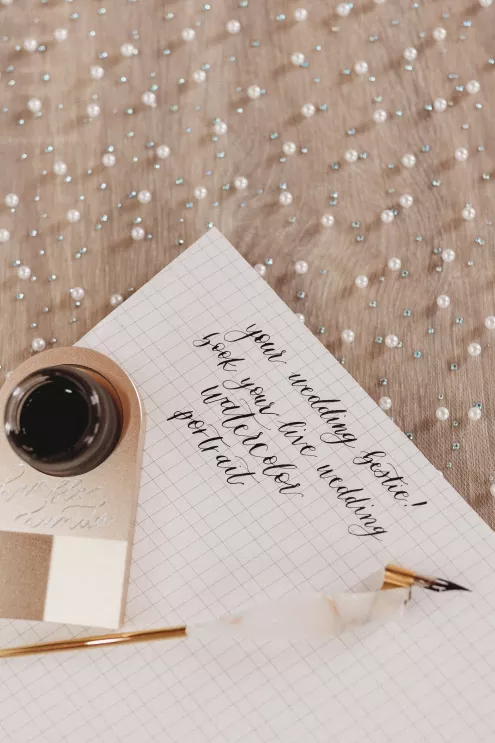 your wedding bestie!
book your live wedding
watercolor
portrait